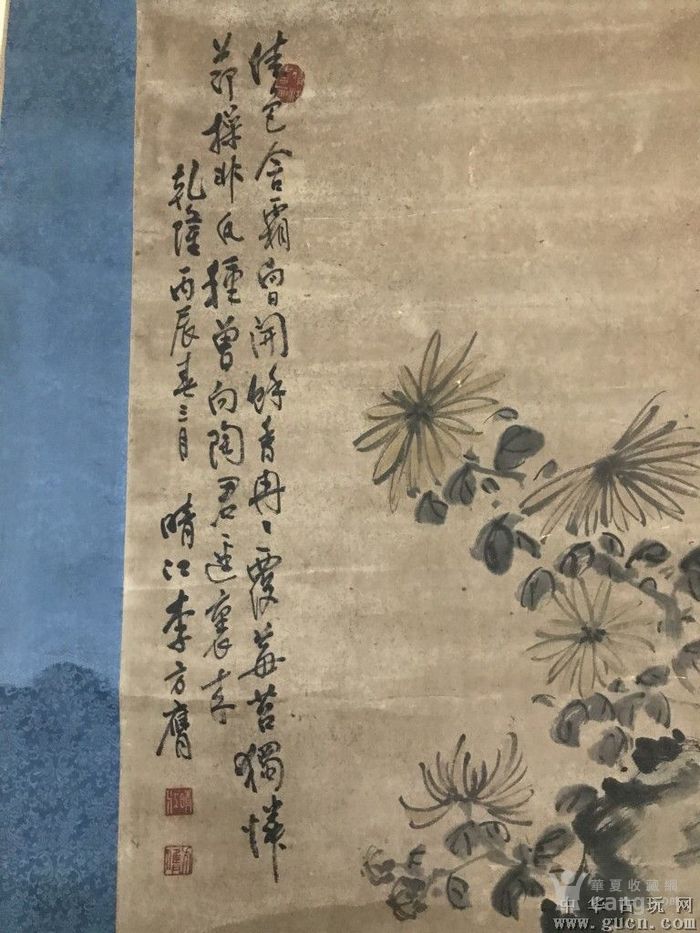 佳色含霜向日開餘香冉〻覆莓苔獨憐
節操非凡種曾向陶君逕裏來
乾隆丙辰春三月 晴江李方膺
晴江
方膺
華夏收藏網
中华古玩网
www.gucn.com